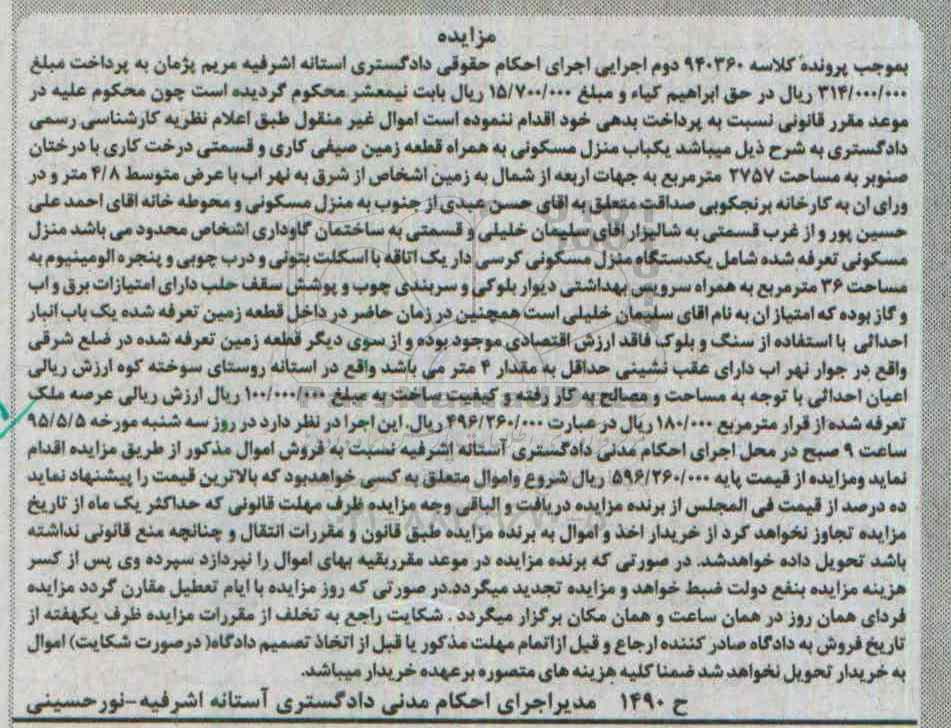 مزایده
بموجب پرونده کلاسه ۹۴۰۳۶۰ دوم اجرایی اجرای احکام حقوقی دادگستری استانه اشرفیه مریم پژمان به پرداخت مبلغ
۳۱۴/۰۰۰/۰۰۰ ریال در حق ابراهیم کیاء و مبلغ ۱۵/۷۰۰/۰۰۰ ریال بابت نیمعشر محکوم گردیده است چون محکوم علیه در
موعد مقرر قانونی نسبت به پرداخت بدهی خود اقدام ننموده است اموال غیر منقول طبق اعلام نظریه کارشناسی رسمی
دادگستری به شرح ذیل میباشد یکباب منزل مسکونی به همراه قطعه زمین صیفی کاری و قسمتی درخت کاری با درختان
صنوبر به مساحت ۲۷۵۷ مترمربع به جهات اربعه از شمال به زمین اشخاص از شرق به نهر اب با عرض متوسط ۴/۸ متر و در
ورای ان به کارخانه برنجکوبی صداقت متعلق به اقای حسن عبدی از جنوب به منزل مسکونی و محوطه خانه اقای احمد علی
حسین پور و از غرب قسمتی به شالیزار اقای سلیمان خلیلی و قسمتی به ساختمان گاوداری اشخاص محدود می باشد منزل
مسکونی تعرفه شده شامل یکدستگاه منزل مسکونی کرسی دار یک اتاقه با اسکلت بتونی و درب چوبی و پنجره الومینیوم به
مساحت ۳۶ مترمربع به همراه سرویس بهداشتی دیوار بلوکی و سربندی چوب و پوشش سقف حلب دارای امتیازات برق و اب
و گاز بوده که امتیاز ان به نام اقای سلیمان خلیلی است همچنین در زمان حاضر در داخل قطعه زمین تعرفه شده یک باب انبار
احداثی با استفاده از سنگ و بلوک فاقد ارزش اقتصادی موجود بوده و از سوی دیگر قطعه زمین تعرفه شده در ضلع شرقی
واقع در جوار نهر اب دارای عقب نشینی حداقل به مقدار ۴ متر می باشد واقع در استانه روستای سوخته کوه ارزش ریالی
اعیان احداثی با توجه به مساحت و مصالح به کار رفته و کیفیت ساخت به مبلغ ۱۰۰/۰۰۰/۰۰۰ ریال ارزش ریالی عرصه ملک
تعرفه شده از قرار مترمربع ۱۸۰/۰۰۰ ریال در عبارت ۴۹۶/۲۶۰/۰۰۰ ریال. این اجرا در نظر دارد در روز سه شنبه مورخه ۹۵/۵/۵
ساعت ۹ صبح در محل اجرای احکام مدنی دادگستری آستانه اشرفیه نسبت به فروش اموال مذکور از طریق مزایده اقدام
نماید ومزایده از قیمت پایه ۵۹۶/۲۶۰/۰۰۰ ریال شروع واموال متعلق به کسی خواهدبود که بالاترین قیمت را پیشنهاد نماید
ده درصد از قیمت فی المجلس از برنده مزایده دریافت و الباقی وجه مزایده ظرف مهلت قانونی که حداکثر یک ماه از تاریخ
مزایده تجاوز نخواهد کرد از خریدار اخذ و اموال به برنده مزایده طبق قانون و مقررات انتقال و چنانچه منع قانونی نداشته
باشد تحویل داده خواهدشد. در صورتی که برنده مزایده در موعد مقرربقیه بهای اموال را نپردازد سپرده وی پس از کسر
هزینه مزایده بنفع دولت ضبط خواهد و مزایده تجدید میگردد.در صورتی که روز مزایده با ایام تعطیل مقارن گردد مزایده
فردای همان روز در همان ساعت و همان مکان برگزار میگردد . شکایت راجع به تخلف از مقررات مزایده ظرف یکهفته از
تاریخ فروش به دادگاه صادر کننده ارجاع و قبل ازاتمام مهلت مذکور یا قبل از اتخاذ تصمیم دادگاه( درصورت شکایت) اموال
به خریدار تحویل نخواهد شد ضمنا کلیه هزینه های متصوره برعهده خریدار میباشد.
ح ۱۴۹۰ مدیراجرای احکام مدنی دادگستری آستانه اشرفیه-نورحسینی